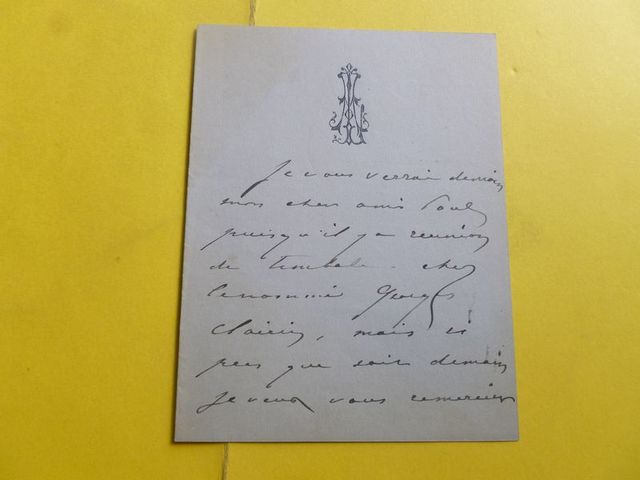 Je vous verrai demain
mon cher ami Paul
puisqu'il y a reunion
de timbale chez
le nommé Georges
Clairin, mais
peu que soit demain
Je veux vous remercier